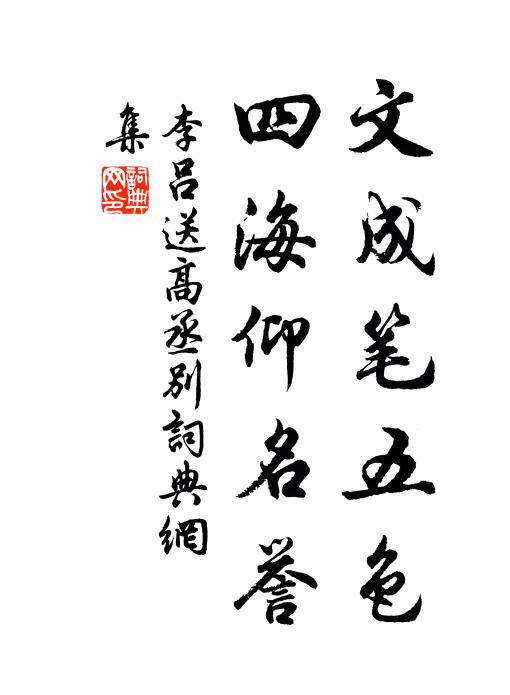 文成笔五色
四海仰名誉
李吕送高丞别詞典網
集
詞典
网印